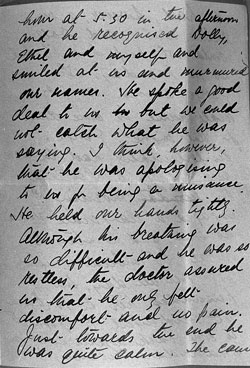 him at 5.30 in the afternoon
and he recognised Dolly,
Ethel and myself and
smiled at us and murmured
our names. He spoke a good
deal to us but we could
not catch what he was
saying. I think, however,
that he was apologising
to us for being a nuisance.
He held our hands tightly.
Although his breathing was
so difficult and he was so
restless, the doctor assured
us that he only felt
discomfort and no pain.
Just towards the end he
was quite calm. The